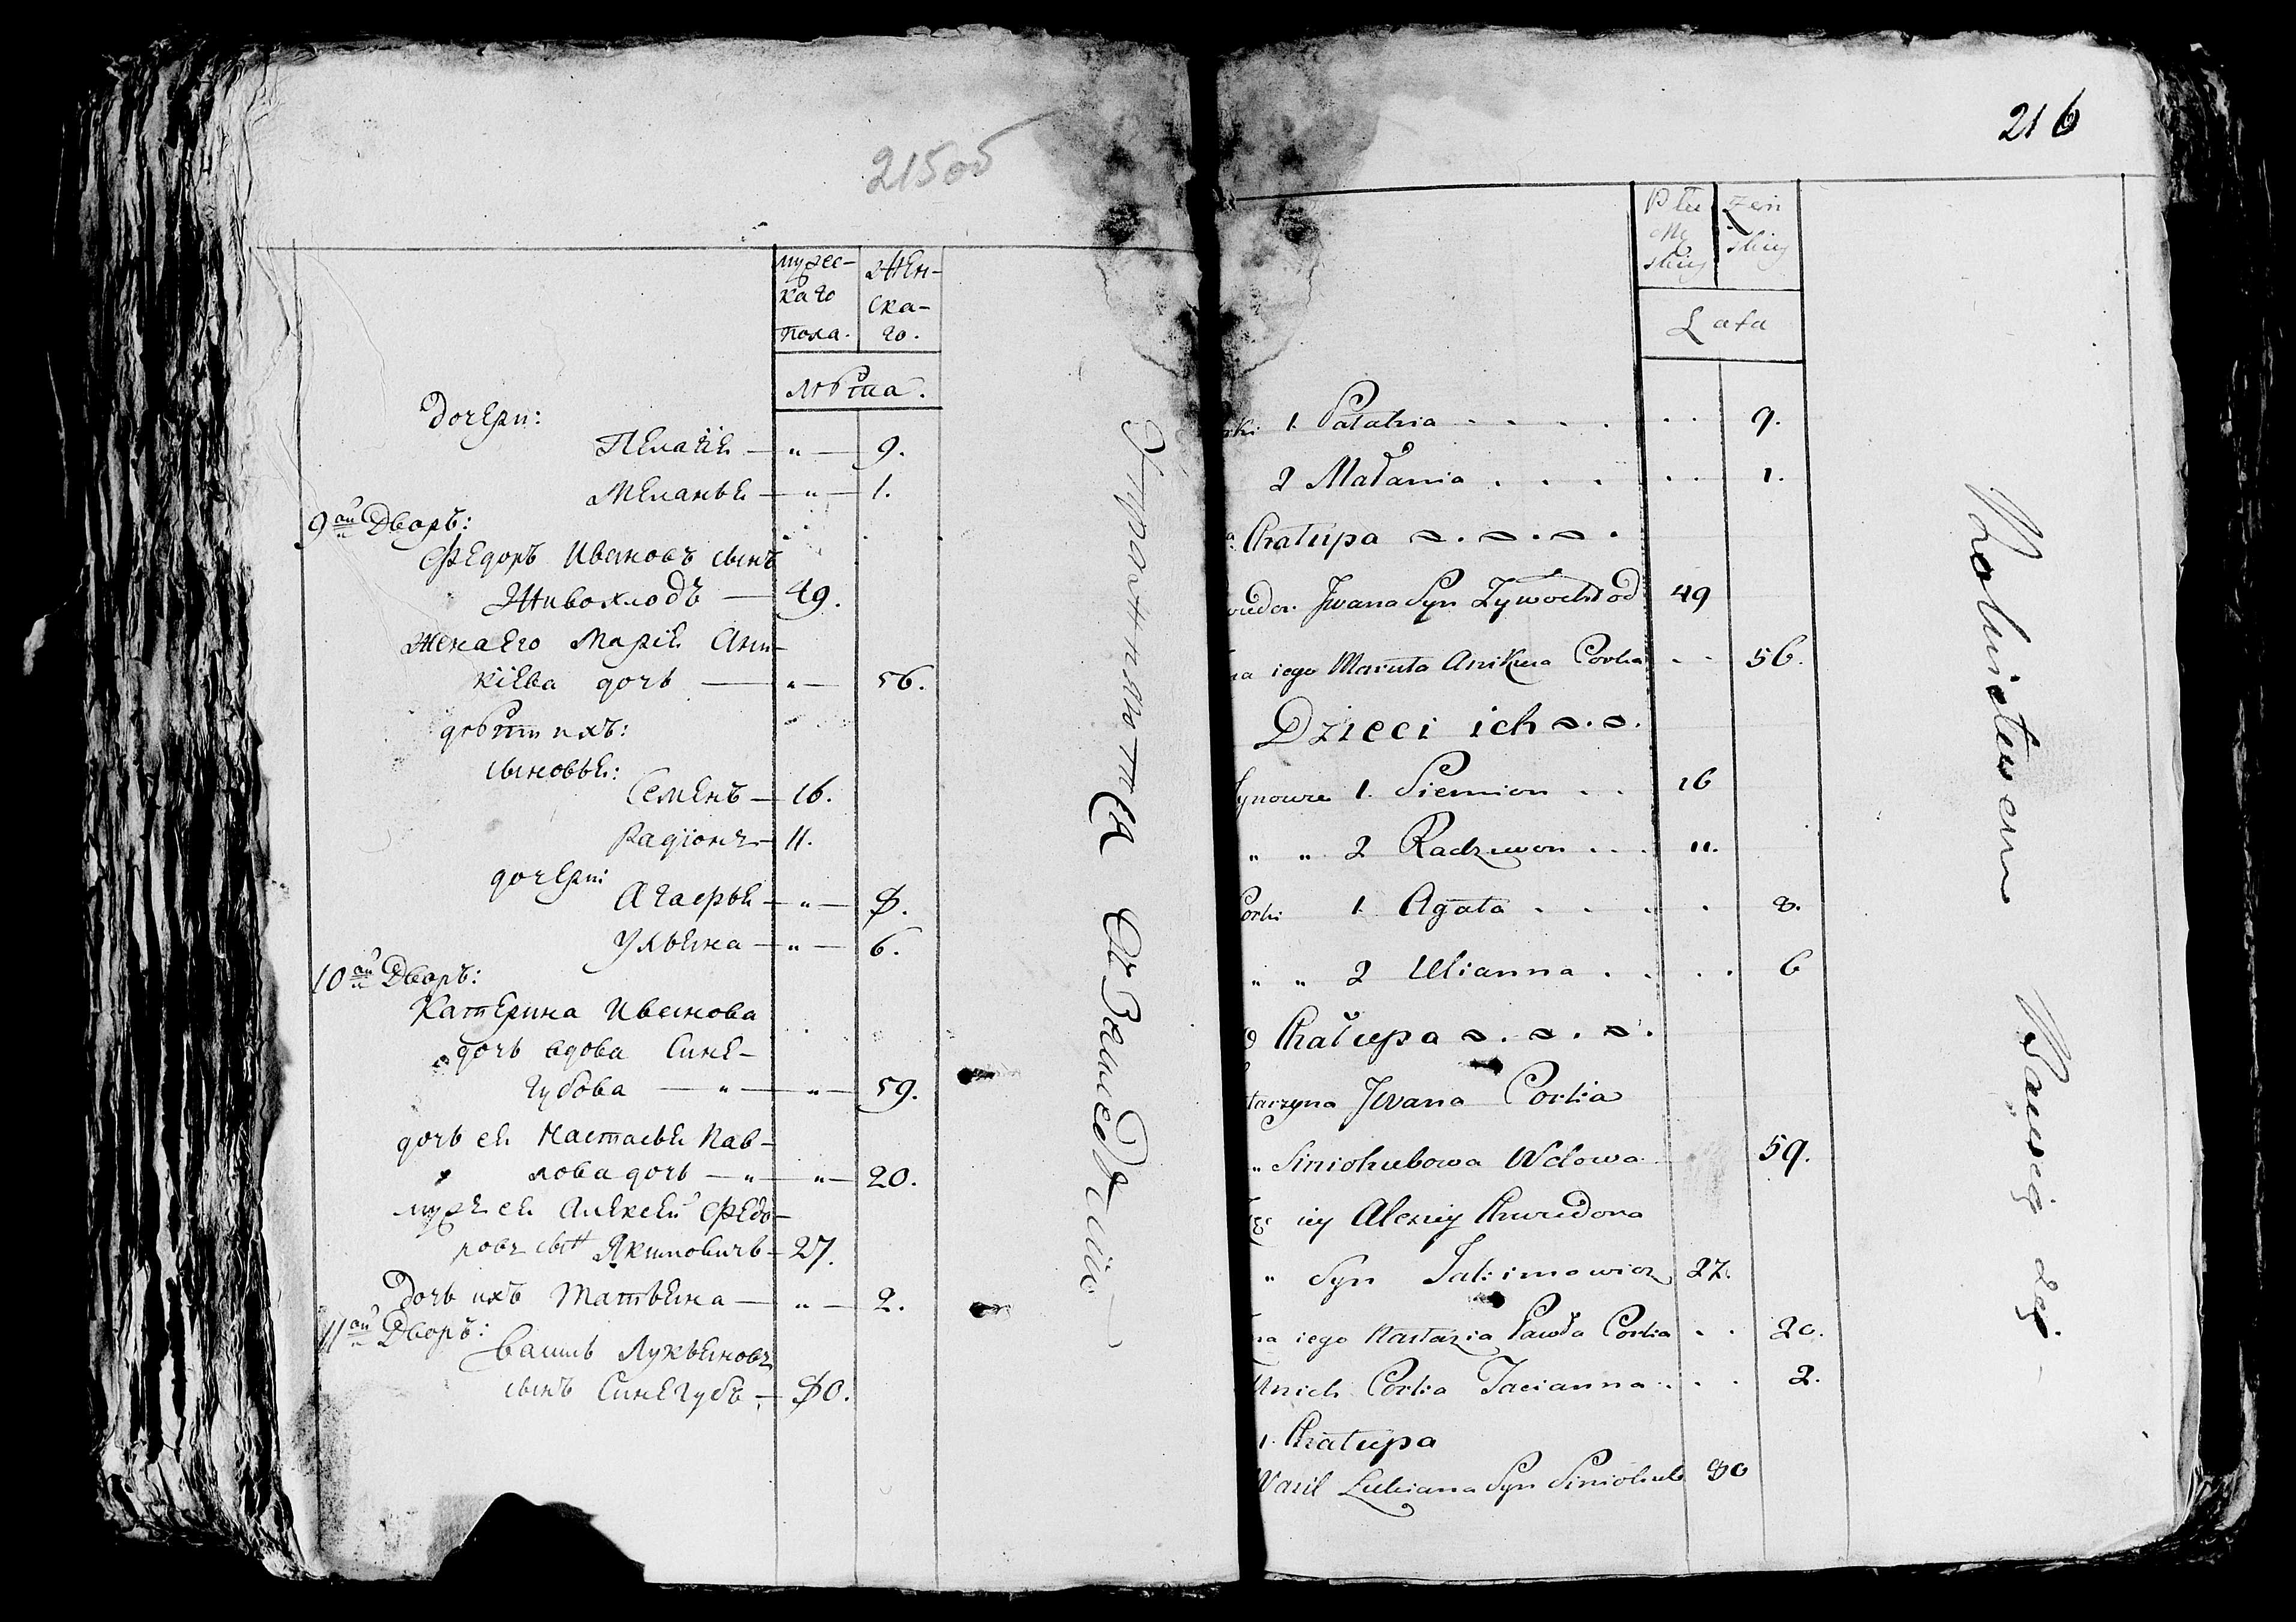 215об
мужес-
каго
пола.
Жен-
ска-
го.
лѣта.
Дочери:
Пелагѣя — „ — 9.
Меланья — „ — 1.
9ый Дворъ:
Федоръ Ивановъ сынъ
Живохлодъ — 49.
Жена его Марья Ани-
кіева дочь — „ — 56.
дѣти ихъ:
сыновья:
Семенъ — 16.
Радіонъ — 11.
дочери:
Агафья — „ — 8.
Ульяна — „ — 6.
10ый Дворъ:
Катерина Иванова
дочь вдова Сине-
губова — „ — „ — 59.
дочь ея Настасья Пав-
лова дочь — „ — „ — 20.
мужъ ея Алексѣй Федо-
ровъ сынъ Якимовичъ — 27.
Дочь ихъ Татьяна — „ — 2.
11ый Дворъ:
Василь Лукьяновъ
сынъ Синегубъ — 80.
Упражняются
216
Płci
Mę
skiey
Żeń
skiey
Lata
rki 1. Pałahia . . . . . . 9.
2 Małania . . . . . 1.
Chałupa
Iwana Syn Zywochłod 49
na iego Maruta Anikiia Corka . . 56.
Dzieci ich
Synowie 1. Siemion . . 16
„ „ 2 Radziwon . . . 11.
Corki 1. Agata . . . . . 8.
„ „ 2 Ulianna . . . . 6
Chałupa
tarzyna Jwana Corka
„ Siniohubowa Wdowa 59.
iey Alexiey Chwiedora
„ Syn Jakimowicz 27.
na iego Nastazia Pawła Corka . . 20.
Unich Corka Tacianna . . . 2.
1. Chałupa
Wasil Lukiana Syn Siniohub 80
Rolnictwem Bawią się.